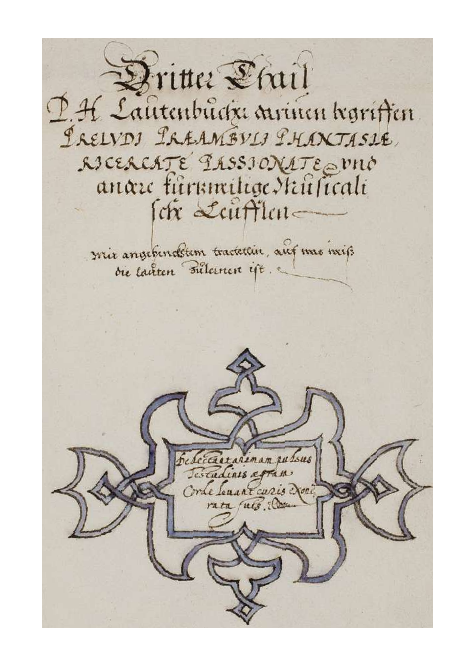 Dritter Thail
P. H. Lautenbuchs darinen begriffen
PRELVDI PRÆAMBVLI PHANTASIÆ,
RICERCATE PASSIONATE vnd
andere kurzweilige Musicali
sche Leufflen
Mit angehencktem tractetlin, auf was weiß
die lauten zulernen ist.
pulsus
Testudinis ægram
Corde levant curis
rata suis.